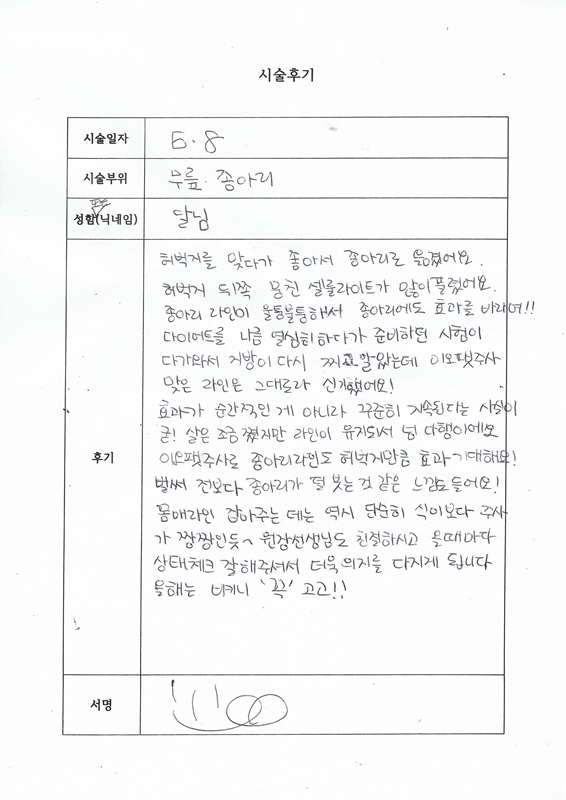 시술후기
시술일자 5.8
시술부위 무릎. 종아리
성함(닉네임) 달님
후기
허벅지를 맞다가 좋아서 종아리로 옮겼어요.
허벅지 뒤쪽 뭉친 셀룰라이트가 많이 풀렸어요.
종아리 라인이 울퉁불퉁해서 종아리에도 효과를 바라며!!
다이어트를 나름 열심히하다가 준비하던 시험이
다가와서 지방이 다시 찌고 말았는데 이오팻주사
맞은 라인은 그대로라 신기했어요!
효과가 순간적인 게 아니라 꾸준히 지속된다는 사실이
굳! 살은 조금 쪘지만 라인이 유지되서 넘 다행이에요
이오팻주사로 종아리라인도 허벅지만큼 효과 기대해요!
벌써 전보다 종아리가 덜 붓는 것 같은 느낌도 들어요!
몸매라인 잡아주는 데는 역시 단순히 식이보다 주사
가 짱짱인듯~ 원장선생님도 친절하시고 올때마다
상태체크 잘해주셔서 더욱 의지를 다지게 됩니다
올해는 비키니 '꼭' 고고!!
서명